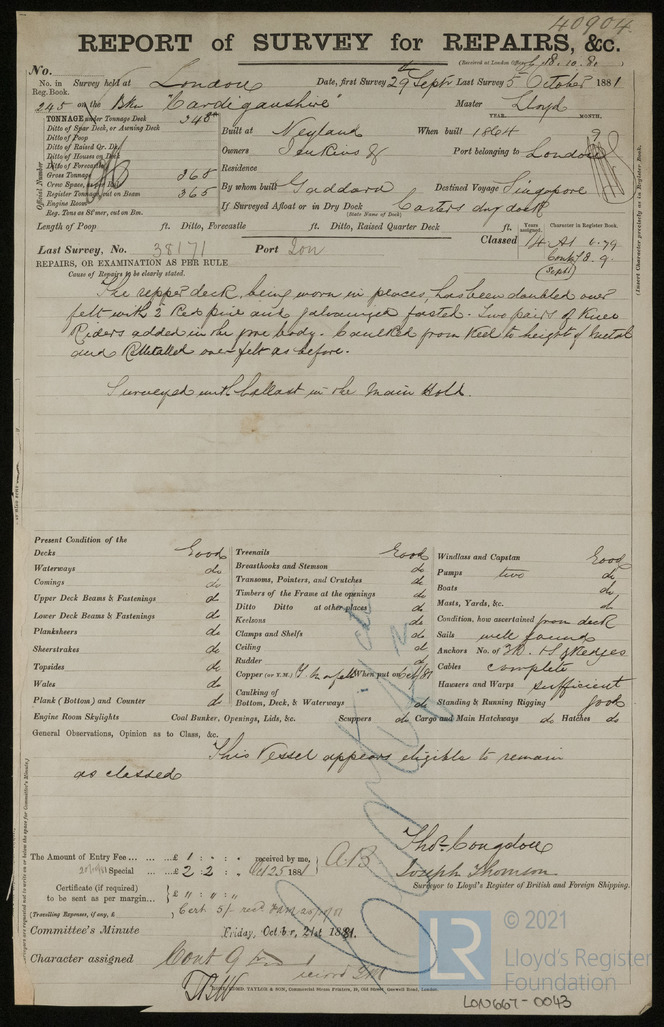 40904
REPORT of SURVEY for REPAIRS, &c.
(Received at London Office 18.10.81
No.
No. in Reg. Book. Survey held at London Date, first Survey 29 Septr Last Survey 5 October 1881
245 on the Bkn "Cardiganshire" Master Lloyd
TONNAGE under Tonnage Deck 348
Ditto of Spar Deck, or Awning Deck
Ditto of Poop
Ditto of Raised Qr. Dk.
Ditto of Houses on Deck
Ditto of Forecastle
Gross Tonnage 368
Crew Space,
Register Tonnage, cut on Beam 365
Engine Room
Reg. Tons as St'mer, cut on Bm.
Official Number
YEAR. MONTH.
Built at Neyland When built 1864 9
Owners Jenkins & Port belonging to London
Residence
By whom built Goddard Destined Voyage Singapore
If Surveyed Afloat or in Dry Dock Carters dry dock
(State Name of Dock)
Length of Poop ft. Ditto, Forecastle ft. Ditto, Raised Quarter Deck ft.
Years assigned. Character in Register Book.
Classed 14 A1 6.79
Last Survey, No. 38171 Port Lon
(Sept)
REPAIRS, OR EXAMINATION AS PER RULE
Cause of Repairs to be clearly stated.
The upper deck, being worn in places, has been doubled over
felt with 2 Red pine and galvanized fasteng. Two pairs of Knee
Riders added in the fore body. Caulked from Keel to height of Metal
and ReMetalled over felt as before.
Surveyed with ballast in the Main Hold.
Present Condition of the
Decks Good
Waterways do
Comings do
Upper Deck Beams & Fastenings do
Lower Deck Beams & Fastenings do
Planksheers do
Sheerstrakes do
Topsides do
Wales do
Plank (Bottom) and Counter do
Treenails Good
Breasthooks and Stemson do
Transoms, Pointers, and Crutches do
Timbers of the Frame at the openings do
Ditto Ditto at other places do
Keelsons do
Clamps and Shelfs do
Ceiling do
Rudder do
Copper (or Y.M.) Y. M on felt When put on Oct/81
Caulking of
Bottom, Deck, & Waterways do
Windlass and Capstan Good
Pumps two do
Boats do
Masts, Yards, &c. do
Condition, how ascertained from deck
Sails well found
Anchors No. of
Cables complete
Hawsers and Warps sufficient
Standing & Running Rigging good
Engine Room Skylights Coal Bunker, Openings, Lids, &c. Scuppers do Cargo and Main Hatchways do Hatches do
General Observations, Opinion as to Class, &c.
This Vessel appears eligible to remain
as classed
The Amount of Entry Fee ... £ 1 : : received by me,
Special ... £ 2 : 2 : Oct 25 188
Certificate (if required)
to be sent as per margin...
(Travelling Expenses, if any, £
Thos. Congdon
Joseph Thomson
Surveyor to Lloyd's Register of British and Foreign Shipping.
Committee's Minute Friday, October, 21st 1881.
Character assigned Cont 9
TBW
© 2021
LR
Lloyd's Register
Foundation
LON667-0043